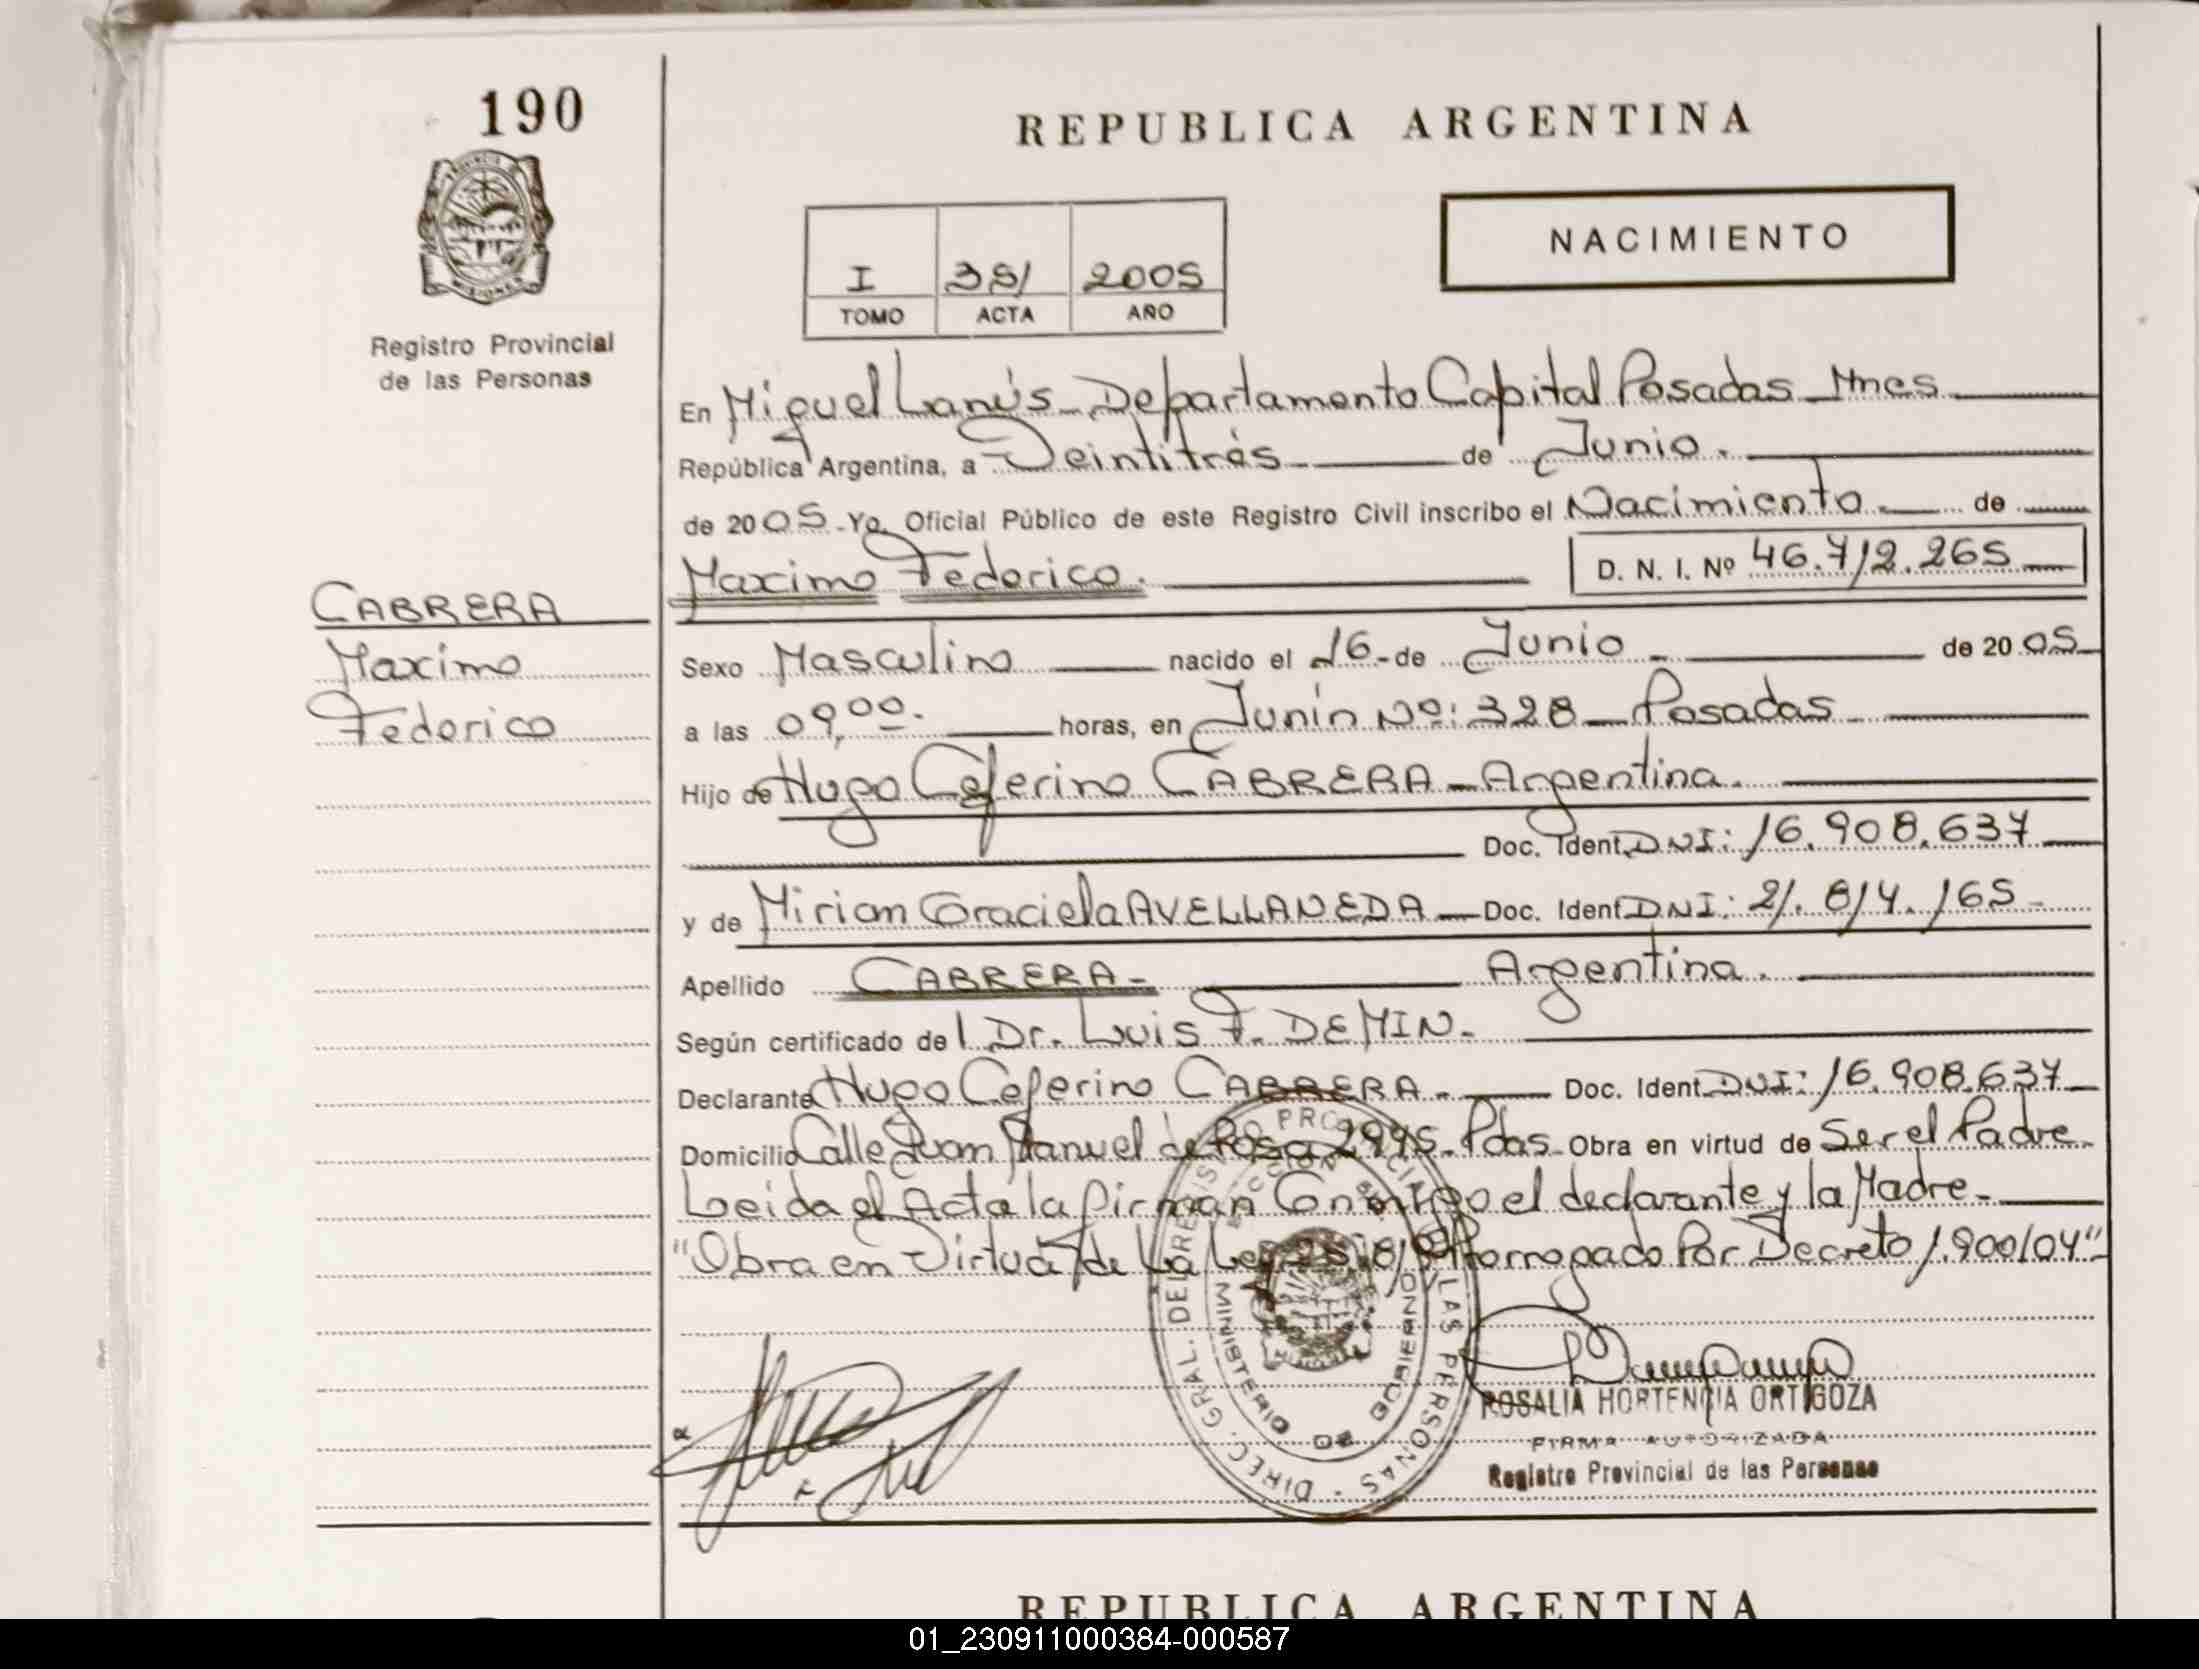 190
REPUBLICA ARGENTINA
NACIMIENTO
I 381 2005
TOMO ACTA AÑO
Registro Provincial
de las Personas
En Miguel Lanús - Departamento Capital Posadas - Mnes
República Argentina, a Veintitrés de Junio.
de 2005 - Yo, Oficial Público de este Registro Civil inscribo el Nacimiento de
Maximo Federico. D. N. I. Nº 46.712.265
CABRERA
Maximo
Federico
Sexo Masculino nacido el 16 - de Junio de 2005
a las 09,00. horas, en Junín Nº: 328 - Posadas
Hijo de Hugo Ceferino CABRERA - Argentina.
Doc. Ident. DNI: 16.908.637
y de Miriam Graciela AVELLANEDA - Doc. Ident. DNI: 21.814.165 -
Apellido CABRERA - Argentina.
Según certificado del Dr. Luis F. DEMIN.
Declarante Hugo Ceferino CABRERA. - Doc. Ident. DNI: 16.908.637
Domicilio Calle Juan Manuel de Rosa 2995 - Pdas - Obra en virtud de Ser el Padre
Leida el Acta la firman Conmigo el declarante y la Madre -
"Obra en Virtud de La Ley Prorrogado Por Decreto 1.900/04"
DIREC. GRAL. DEL REGISTRO PROVINCIAL DE LAS PERSONAS
MINISTERIO DE GOBIERNO
ROSALIA HORTENCIA ORTIGOZA
FIRMA AUTORIZADA
Registro Provincial de las Personas
REPUBLICA ARGENTINA
01_230911000384-000587